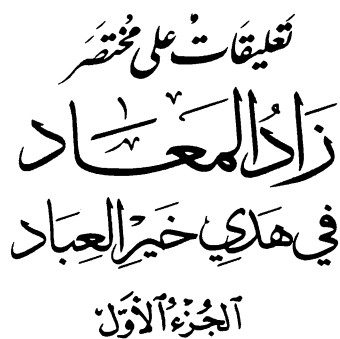 تعليقات على مختصر
زاد المعاد
في هدي خير العباد
الجزء الأول